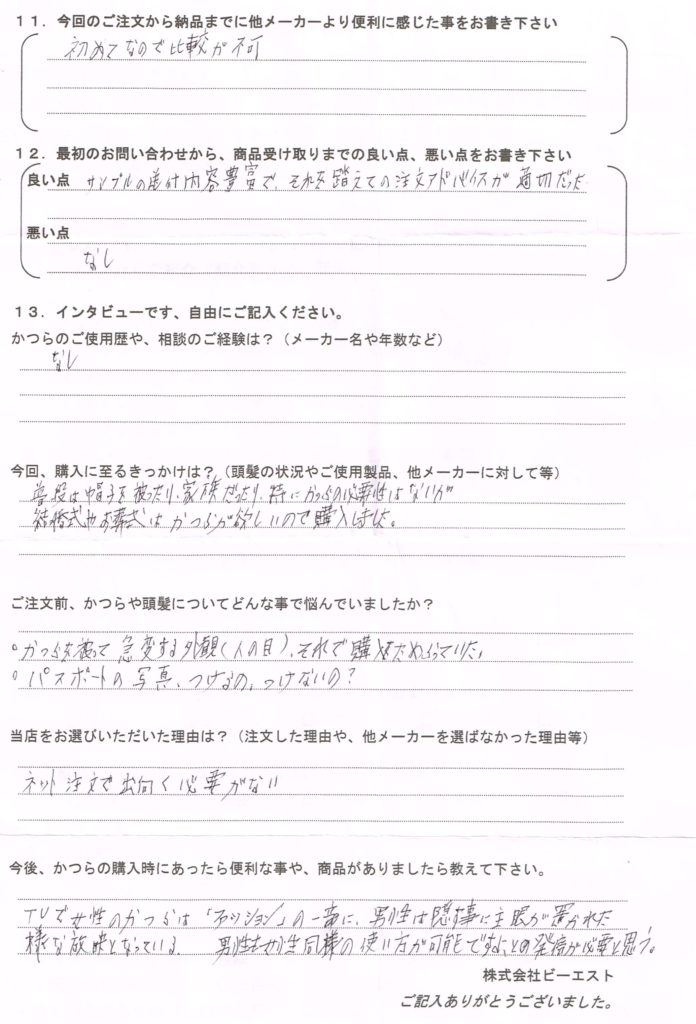 11．今回のご注文から納品までに他メーカーより便利に感じた事をお書き下さい
初めてなので比較が不可
12．最初のお問い合わせから、商品受け取りまでの良い点、悪い点をお書き下さい
良い点 サンプルの送付内容豊富で、それを踏えての注文アドバイスが適切だった
悪い点
なし
13．インタビューです、自由にご記入ください。
かつらのご使用歴や、相談のご経験は？（メーカー名や年数など）
なし
今回、購入に至るきっかけは？（頭髪の状況やご使用製品、他メーカーに対して等）
普段は帽子を被ったり、家族だったり、特にかつらの必要性はないが
結婚式やお葬式はかつらが欲しいので購入しました。
ご注文前、かつらや頭髪についてどんな事で悩んでいましたか？
○かつらを被って急変する外観（人の目）、それで購入をためらっていた。
○パスポートの写真、つけるの、つけないの？
当店をお選びいただいた理由は？（注文した理由や、他メーカーを選ばなかった理由等）
ネット注文で出向く必要がない
今後、かつらの購入時にあったら便利な事や、商品がありましたら教えて下さい。
TVで女性のかつらは「ファッション」の一番に、男性は隠す事に主眼が置かれた
様な放映となっている。 男性も女性同様の使い方が可能ですよとの発信が必要と思う。
株式会社ビーエスト
ご記入ありがとうございました。